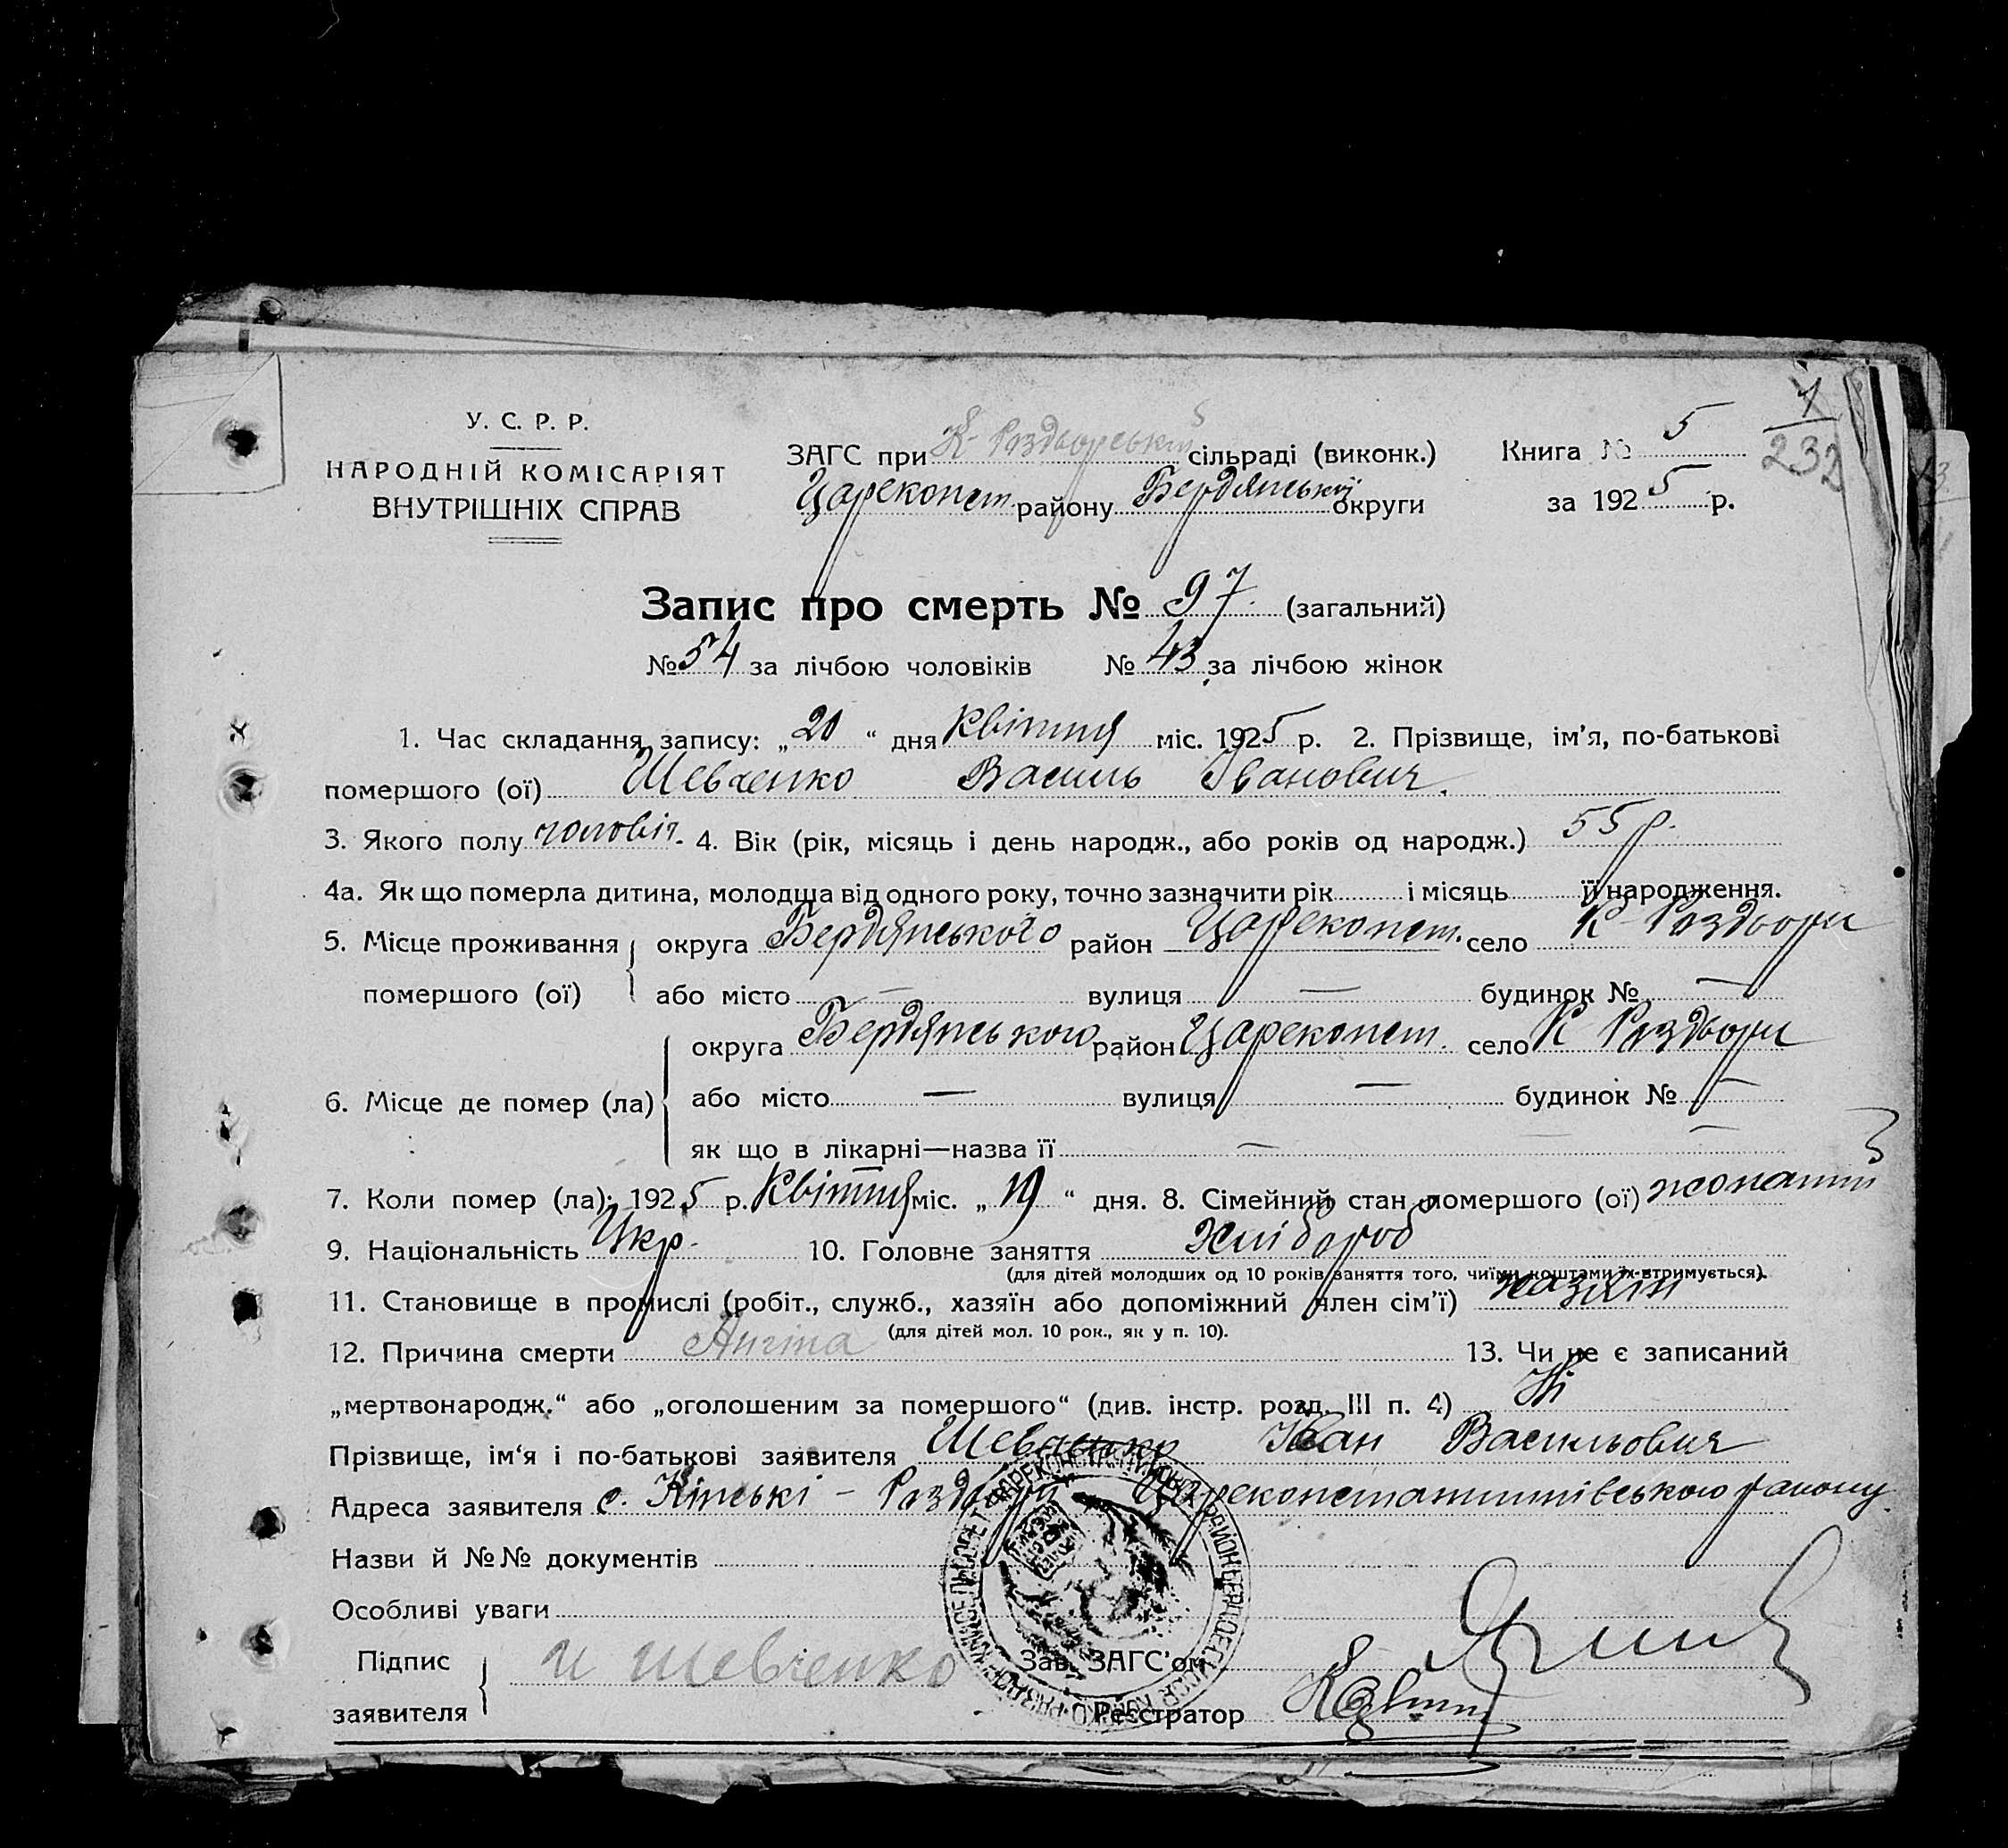 У. С. Р. Р.
НАРОДНІЙ КОМІСАРІЯТ
ВНУТРІШНІХ СПРАВ
ЗАГС при К-Роздорський сільраді (виконк.)
Цареконст. району Бердянської округи
Книга № 5
за 1925 р.
1
232
Запис про смерть № 97 (загальний)
№ 54 за лічбою чоловіків № 43 за лічбою жінок
1. Час складання запису: „20“ дня квітня міс. 1925 р. 2. Прізвище, ім'я, по-батькові
помершого (ої) Шевченко Василь Іванович.
3. Якого полу чоловіч. 4. Вік (рік, місяць і день народж., або років од народж.) 55 р.
4а. Як що померла дитина, молодша від одного року, точно зазначити рік і місяць її народження.
5. Місце проживання округа Бердянського район Цареконст. село К-Роздори
помершого (ої) або місто — вулиця — будинок № —
округа Бердянського район Цареконст. село К Роздори
6. Місце де помер (ла) або місто — вулиця — будинок № —
як що в лікарні—назва її —
7. Коли помер (ла): 1925 р. квітня міс. „19“ дня. 8. Сімейний стан помершого (ої) жонатий
9. Національність Укр. 10. Головне заняття Хлібороб
(для дітей молодших од 10 років заняття того, чиїми коштами їх втримується).
11. Становище в промислі (робіт., служб., хазяїн або допоміжний член сім'ї) хазяїн
(для дітей мол. 10 рок., як у п. 10).
12. Причина смерти Ангіна 13. Чи не є записаний
„мертвонародж.“ або „оголошеним за помершого“ (див. інстр. розд. III п. 4) Ні
Прізвище, ім'я і по-батькові заявителя Шевченко Іван Васильович
Адреса заявителя с. Кінські - Роздори Цареконстантинівського району
Назви й №№ документів
Особливі уваги
Підпис
заявителя И Шевченко
Зав. ЗАГС'ом
Реєстратор